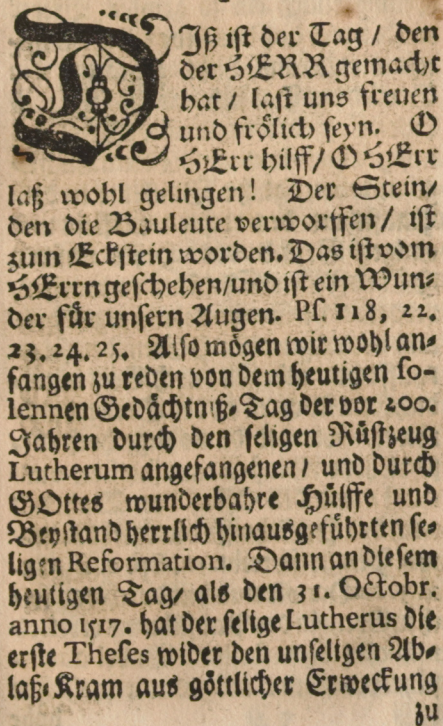 DIß ist der Tag / den
der HERR gemacht
hat / last uns freuen
und frölich seyn. O
HErr hilff / O HErr
laß wohl gelingen! Der Stein /
den die Bauleute verworffen / ist
zum Eckstein worden. Das ist vom
HErrn geschehen / und ist ein Wun⸗
der für unsern Augen. Ps. 118, 22.
23. 24. 25. Also mögen wir wohl an⸗
fangen zu reden von dem heutigen so-
lennen Gedächtniß⸗Tag der vor 200.
Jahren durch den seligen Rüstzeug
Lutherum angefangenen / und durch
GOttes wunderbahre Hülffe und
Beystand herrlich hinausgeführten se⸗
ligen Reformation. Dann an diesem
heutigen Tag / als den 31. Octobr.
anno 1517. hat der selige Lutherus die
erste Theses wider den unseligen Ab⸗
laß⸗Kram aus göttlicher Erweckung
zu